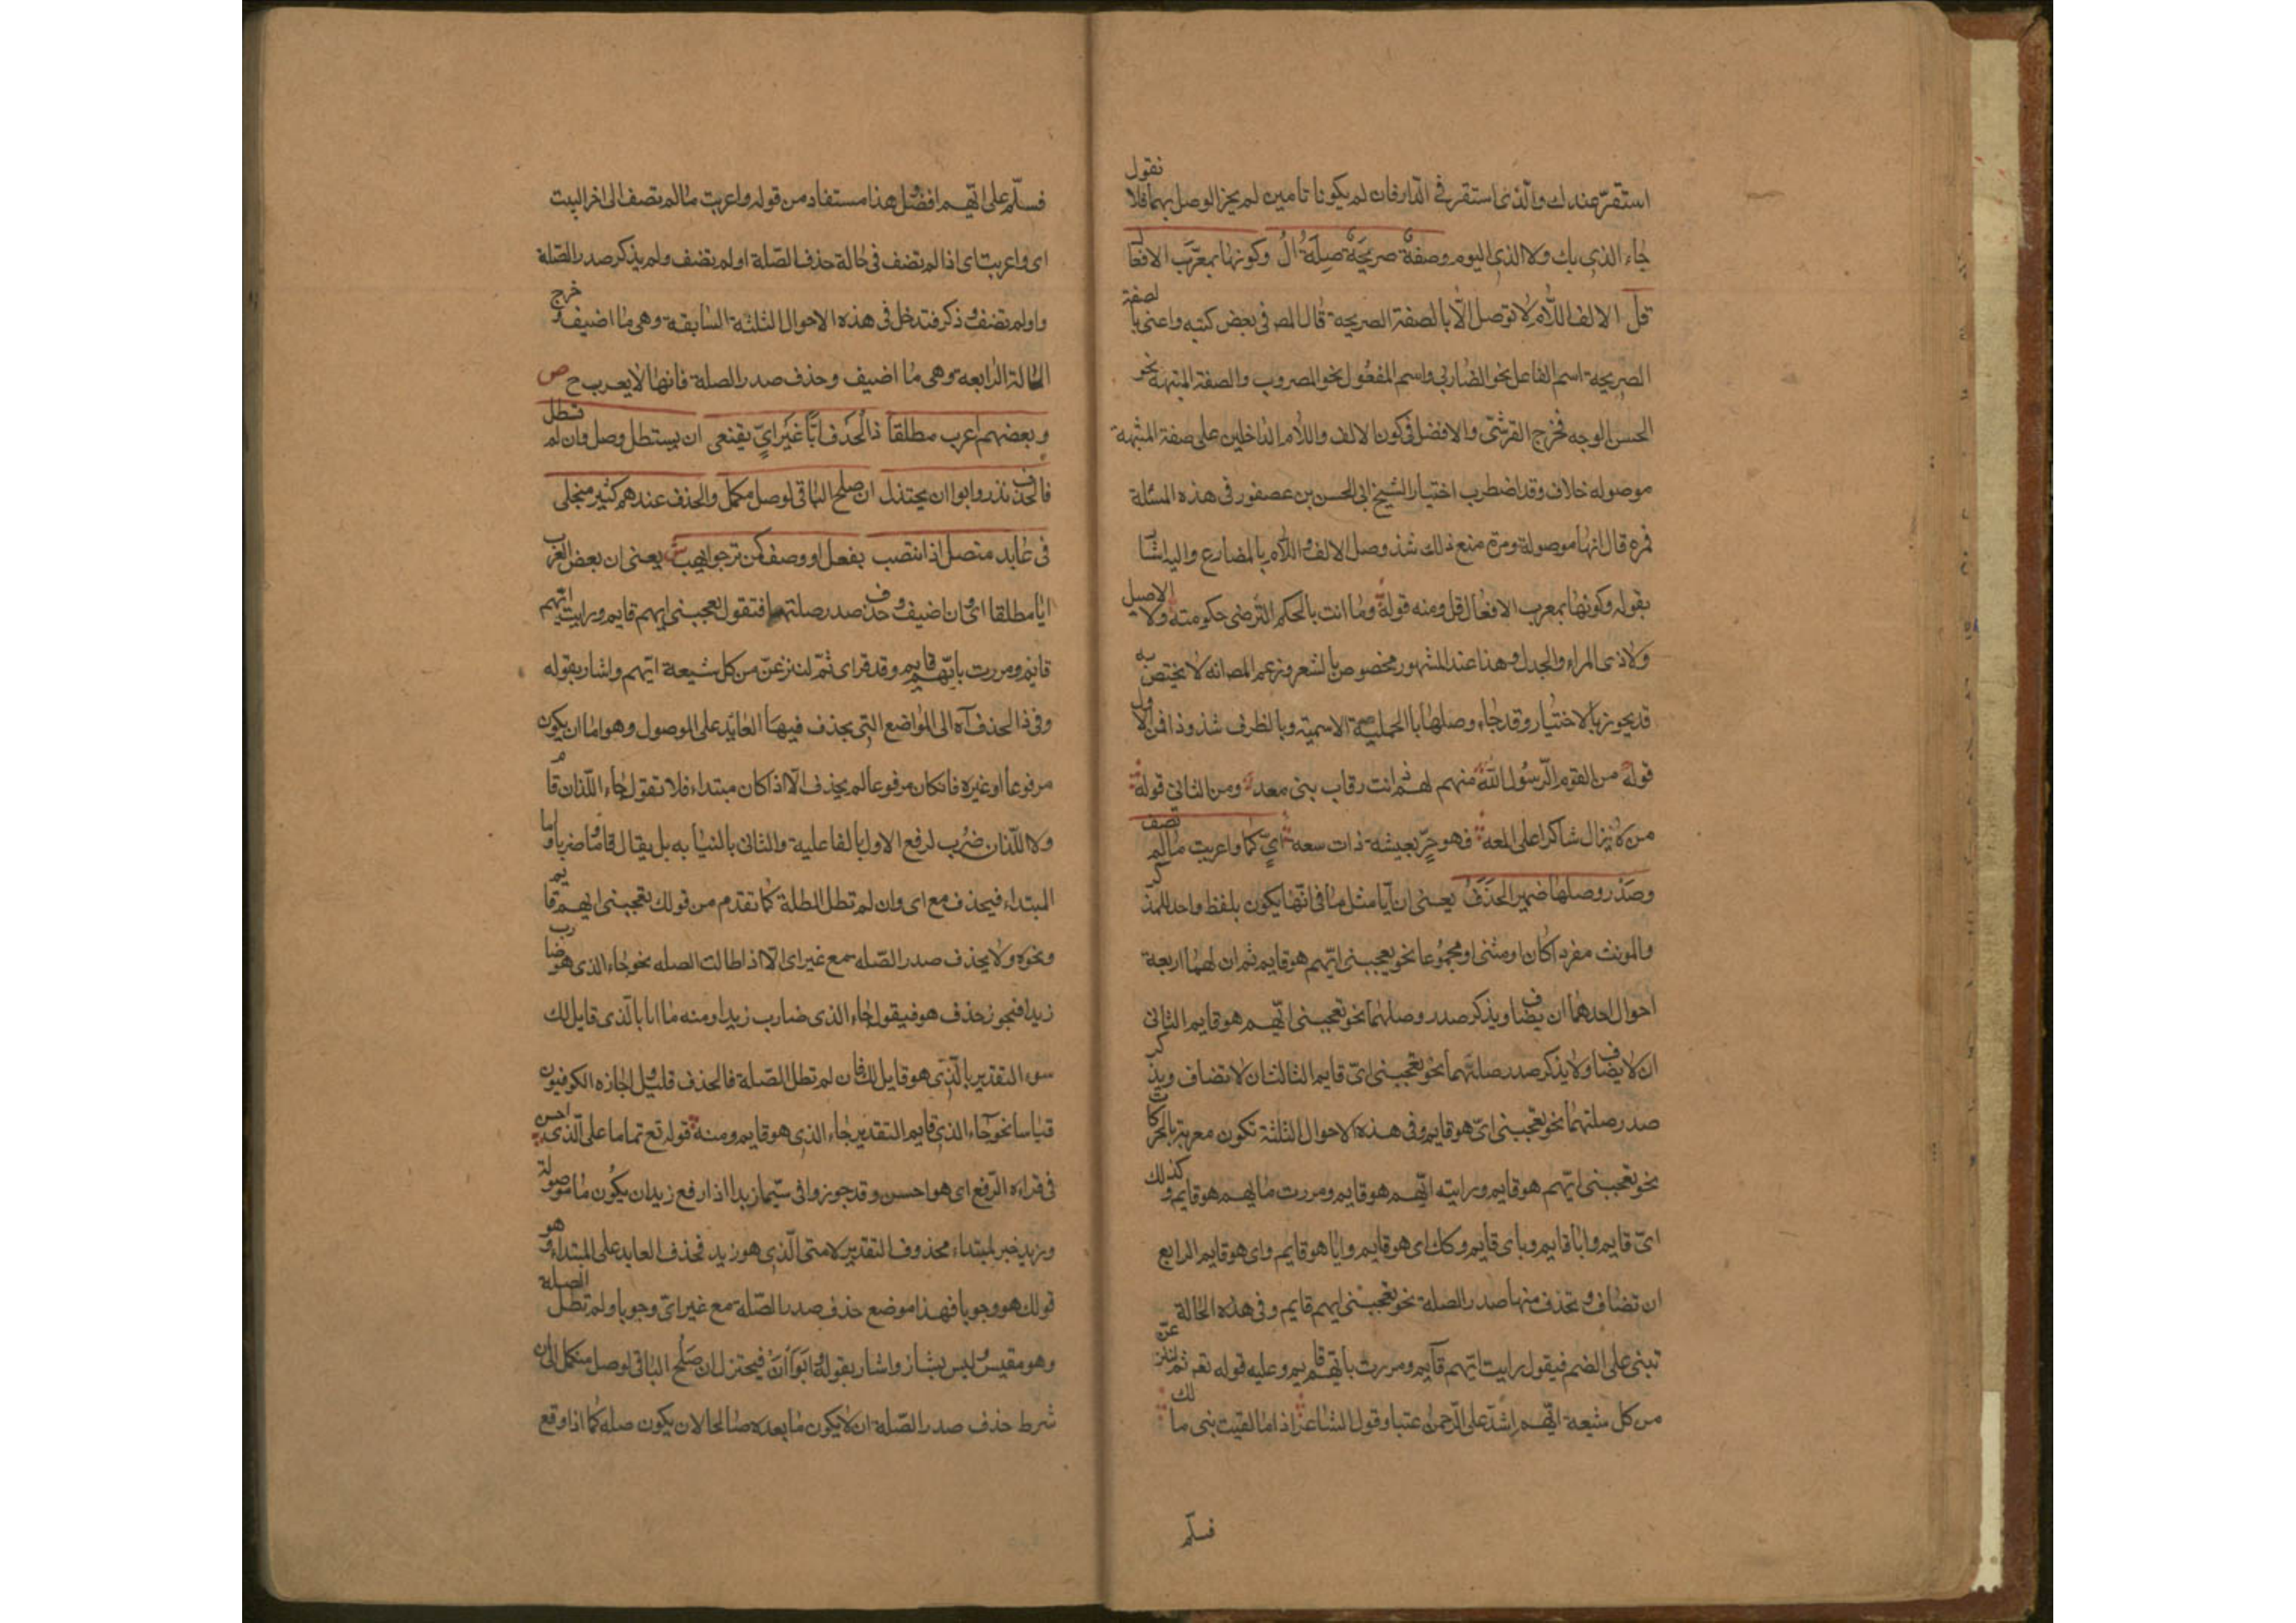 استقر عندك والذى استقر فى الدار فان لم يكونا تامين لم يجز الوصل بهما فلا نقول
جاء الذى بك ولا الذى اليوم وصفة صريحة صلة ال وكونها بمعرب الافعا
قل الالف واللام لا توصل الا بالصفة الصريحة قال المص فى بعض كتبه واعنى بالصفة
الصريحة اسم الفاعل نحو الضارب واسم المفعول نحو المضروب والصفة المشبهة نحو
الحسن الوجه فخرج القرشى والافضل فى كون الالف واللام الداخلين على صفة المشبهة
موصوله خلاف وقد اضطرب اختيار الشيخ ابى الحسن بن عصفور فى هذه المسئلة
فمره قال انها موصولة ومرة منع ذلك شذ وصل الالف واللام بالمضارع واليه اشار
بقوله وكونها بمعرب الافعال قل ومنه قولة وما انت بالحكم الترضى حكومته ولا الاصيل
ولا ذى المراء والجدل وهذا عند المشهور مخصوص بالشعر وزعم المص انه لا يختص به
قد يجوز بالاختيار وقد جاء وصلها بالجملة الاسمية وبالظرف شذوذا فمن الاول
قوله من القوم الرسول الله منهم لهم دانت رقاب بنى معد ومن الثانى قولة
من لا يزال شاكرا على المعه فهو حر بعيشه ذات سعه اى كما واعربت مالم تضف
وصدر وصلها ضمير انحذف يعنى ان ايا مثل ما فى انها يكون بلفظ واحد للمذكر
والمونث مفردا كان او مثنى او مجموعا نحو يعجبنى ايهم هو قايم ثم ان لهما اربعة
احوال احدهما ان يضاف ويذكر صدر وصلهما نحو تعجبنى ايهم هو قايم الثانى
ان لا يضاف ولا يذكر صدر صلتهما نحو تعجبنى اى قايم الثالث ان لا تضاف ويذكر
صدر صلتهما نحو تعجبنى اى هو قايم وفى هذه الاحوال الثلثة تكون معربة بالحركات
نحو تعجبنى ايهم هو قايم ورايته ايهم هو قايم ومررت بايهم هو قايم وكذلك
اى قايم وايا قايم وباى قايم وكك اى هو قايم وايا هو قايم واى هو قايم الرابع
ان تضاف وتحذف منها صدر الصلة نحو تعجبنى ايهم قايم وفى هذه الحالة
تبنى على الضم فيقول رايت ايهم قايم ومررت بايهم قايم وعليه قوله تع ثم لننزعن
من كل شيعة ايهم اشد على الرحمن عتيا وقول الشاعر اذا ما لقيت بنى مالك
فسلّم
فسلّم على ايهم افضل هذا مستفاد من قوله واعربت مالم تضف الى اخر البيت
اى واعربت اى اذا لم تضف فى حالة حذف الصلة او لم تضف ولم يذكر صدر الصلة
واو لم تضف وذكر فتدخل فى هذه الاحوال الثلثة السابقة وهى ما اضيف وخرج
الحالة الرابعة وهى ما اضيف وحذف صدر الصلة فانها لا يعرب ح ص
وبعضهم اعرب مطلقا ذا الحذف ايا غير اى يقتفى ان يستطل وصل وان لم تسطل
فالحذف نذر وابوا ان يختذل ان صلح الباقى لوصل مكمل والحذف عندهم كثير منجلى
فى عايد متصل اذ انتصب بفعل او وصف كمن ترجوا يهب ش يعنى ان بعض العرب
ايا مطلقا اى وان اضيف وحذف صدر صلتها فتقول يعجبنى ايهم قايم ورايت ايهم
قايم ومررت بايهم قايم وقد قراى ثم لننزعن من كل شيعة ايهم واشار بقوله
وفى ذا الحذف آه الى المواضع التى يحذف فيها العايد على الموصول وهو اما ان يكون
مرفوعا او غيره فان كان مرفوعا لم يحذف الا اذا كان مبتداء فلا تقول جاء اللذان قام
ولا اللذان ضرب لرفع الاول بالفاعلية والثانى بالنيابه بل يقال قاما وضربا واما
المبتداء فيحذف مع اى وان لم تطل الصلة كما تقدم من قولك يعجبنى ايهم قايم
ونحوه ولا يحذف صدر الصله مع غير اى الا اذا طالت الصله نحو جاء الذى هو ضارب
زيدا فيجوز حذف هو فيقول جاء الذى ضارب زيدا ومنه ما انا بالذى قايل لك
سوء التقدير بالذى هو قايل لك فان لم تطل الصلة فالحذف قليل واجازه الكوفيون
قياسا نحو جاء الذى قايم التقدير جاء الذى هو قايم ومنه قوله تع تماما على الذى احسن
فى قراءه الرفع اى هو احسن وقد جوزوا فى سيما زيدا اذا رفع زيد ان يكون ما موصولة
وزيد خبر لمبتداء محذوف التقدير لا ستى الذى هو زيد فحذف العايد على المبتداء وهو
قولك هو وجوبا فهذا موضع حذف صدر الصلة مع غير اى وجوبا ولم تطل الصلة
وهو مقيس وليس بشاز واشار بقوله وابوا ان فيختزل ان صلح الباقى لوصل مكمل الى ان
شرط حذف صدر الصلة ان لا يكون ما بعده صالحا لان يكون صله كما اذا وقع